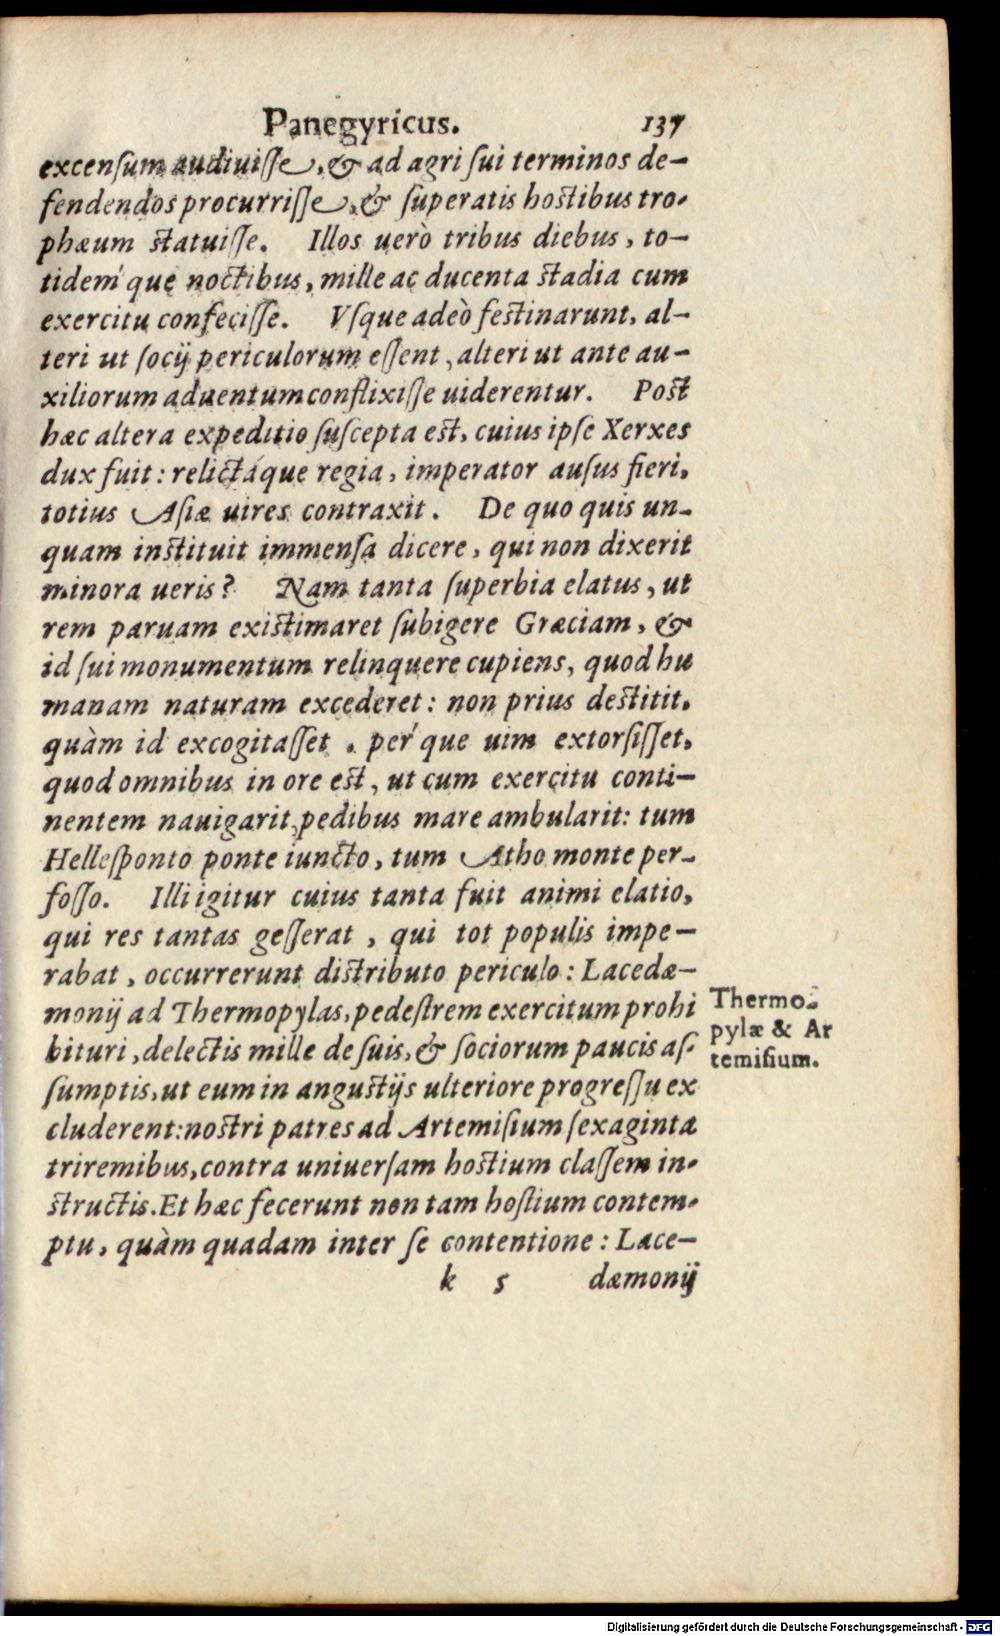 Panegyricus. 137
excenſum audiuiſſe, & ad agri ſui terminos de-
fendendos procurriſſe, & ſuperatis hostibus tro-
phæum statuiſſe. Illos uerò tribus diebus, to-
tidem´que noctibus, mille ac ducenta stadia cum
exercitu confeciſſe. Vſque adeò festinarunt, al-
teri ut ſocij periculorum eſſent, alteri ut ante au-
xiliorum aduentum conflixiſſe uiderentur. Post
hæc altera expeditio ſuſcepta est, cuius ipſe Xerxes
dux fuit: relictáque regia, imperator auſus fieri,
totius Aſiæ uires contraxit. De quo quis un-
quam instituit immenſa dicere, qui non dixerit
minora ueris? Nam tanta ſuperbia elatus, ut
rem paruam existimaret ſubigere Græciam, &
id ſui monumentum relinquere cupiens, quod hu
manam naturam excederet: non prius destitit,
quàm id excogitaſſet, per´que uim extorſiſſet,
quod omnibus in ore est, ut cum exercitu conti-
nentem nauigarit, pedibus mare ambularit: tum
Helleſponto ponte iuncto, tum Atho monte per-
foſſo. Illi igitur cuius tanta fuit animi elatio,
qui res tantas geſſerat, qui tot populis impe-
rabat, occurrerunt distributo periculo: Lacedæ-
monij ad Thermopylas, pedeſtrem exercitum prohi
bituri, delectis mille de ſuis, & ſociorum paucis aſ-
ſumptis, ut eum in angustijs ulteriore progreſſu ex
cluderent: nostri patres ad Artemiſium ſexaginta
triremibus, contra uniuerſam hostium claſſem in-
structis. Et hæc fecerunt non tam hoſtium contem-
ptu, quàm quadam inter ſe contentione: Lace-
k 5 dæmonij
Thermo-
pylæ & Ar
temiſium.
Digitalisierung gefördert durch die Deutsche Forschungsgemeinschaft - DFG